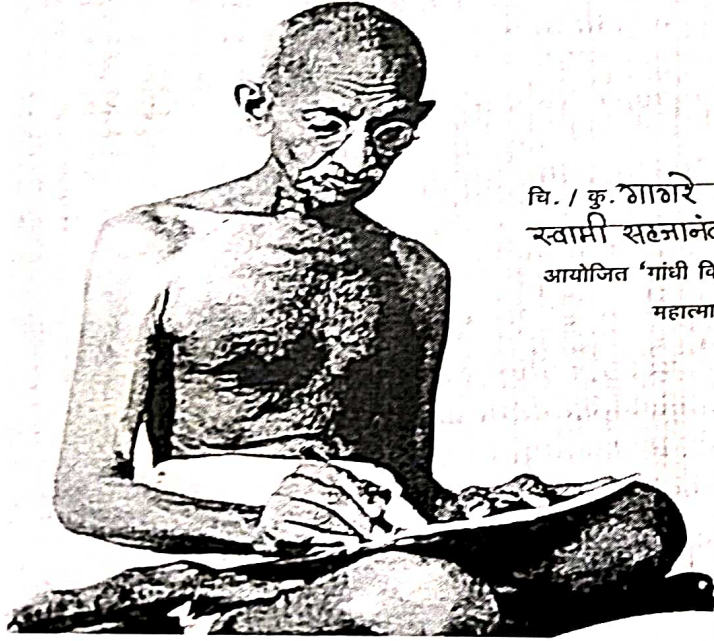 चि. / कु. गागरे
स्वामी सहजानंद
आयोजित ‘गांधी वि
महात्मा